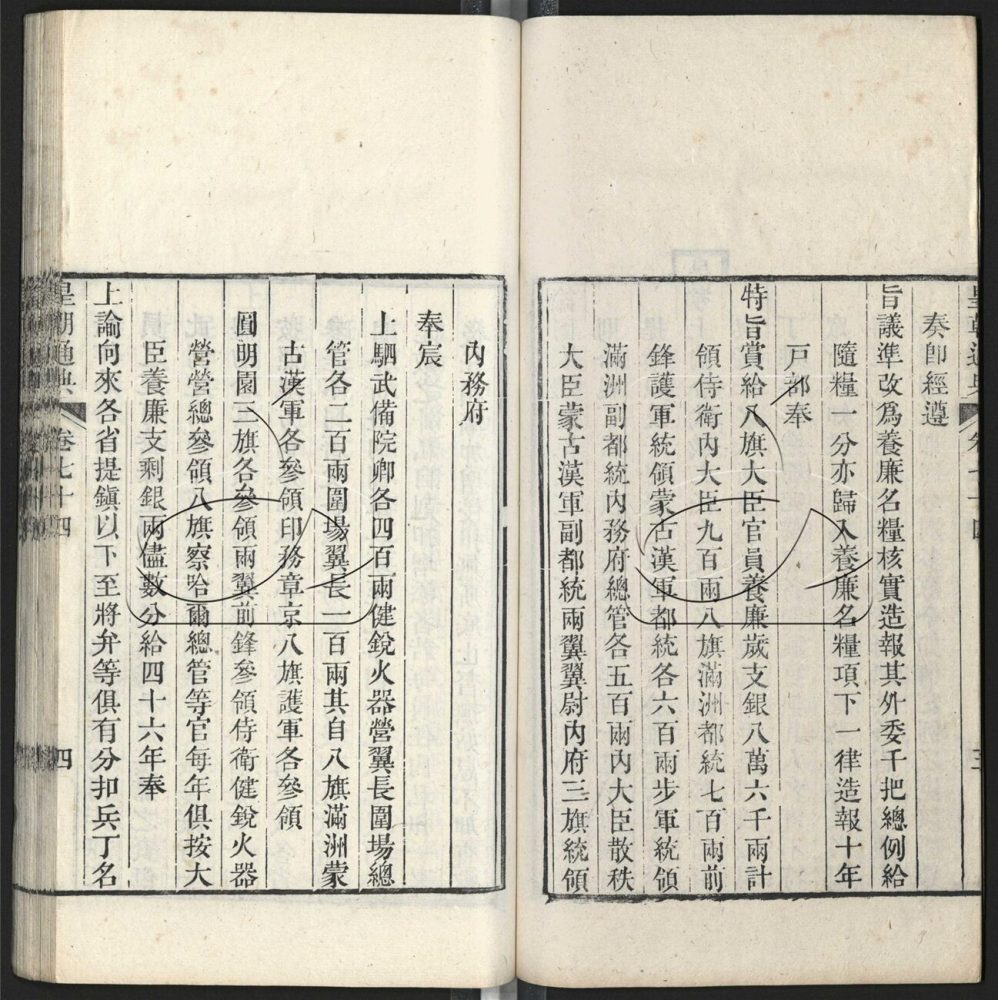 皇朝通典 卷七十四 三
奏卽經遵
旨議準改爲養廉名糧核實造報其外委千把總例給
隨糧一分亦歸入養廉名糧項下一律造報十年
戸部奉
特旨賞給八旗大臣官員養廉歲支銀八萬六千兩計
領侍衛內大臣九百兩八旗滿洲都統七百兩前
鋒護軍統領蒙古漢軍都統各六百兩步軍統領
滿洲副都統內務府總管各五百兩內大臣散秩
大臣蒙古漢軍副都統兩翼翼尉內府三旗統領
內務府
奉宸
上駟武備院卿各四百兩健銳火器營翼長圍場總
管各二百兩圍場翼長一百兩其自八旗滿洲蒙
古漢軍各參領印務章京八旗護軍各參領
圓明園三旗各參領兩翼前鋒參領侍衛健銳火器
營營總參領八旗察哈爾總管等官每年俱按大
臣養廉支剩銀兩儘數分給四十六年奉
上諭向來各省提鎭以下至將弁等俱有分扣兵丁名
皇朝通典 卷七十四 四